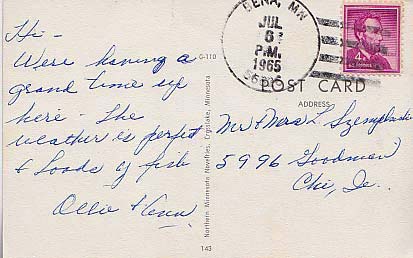 Hi -
Were having a
grand time up
here - The
weather is perfect
& loads of fish
Ollie &
G-110
Northern Minnesota Novelties, Crosslake, Minnesota
143
BENA, MN
JUL
6
P.M.
1965
4¢
POST CARD
ADDRESS
Mr & Mrs L
5996 Goodman
Chi, Ill.